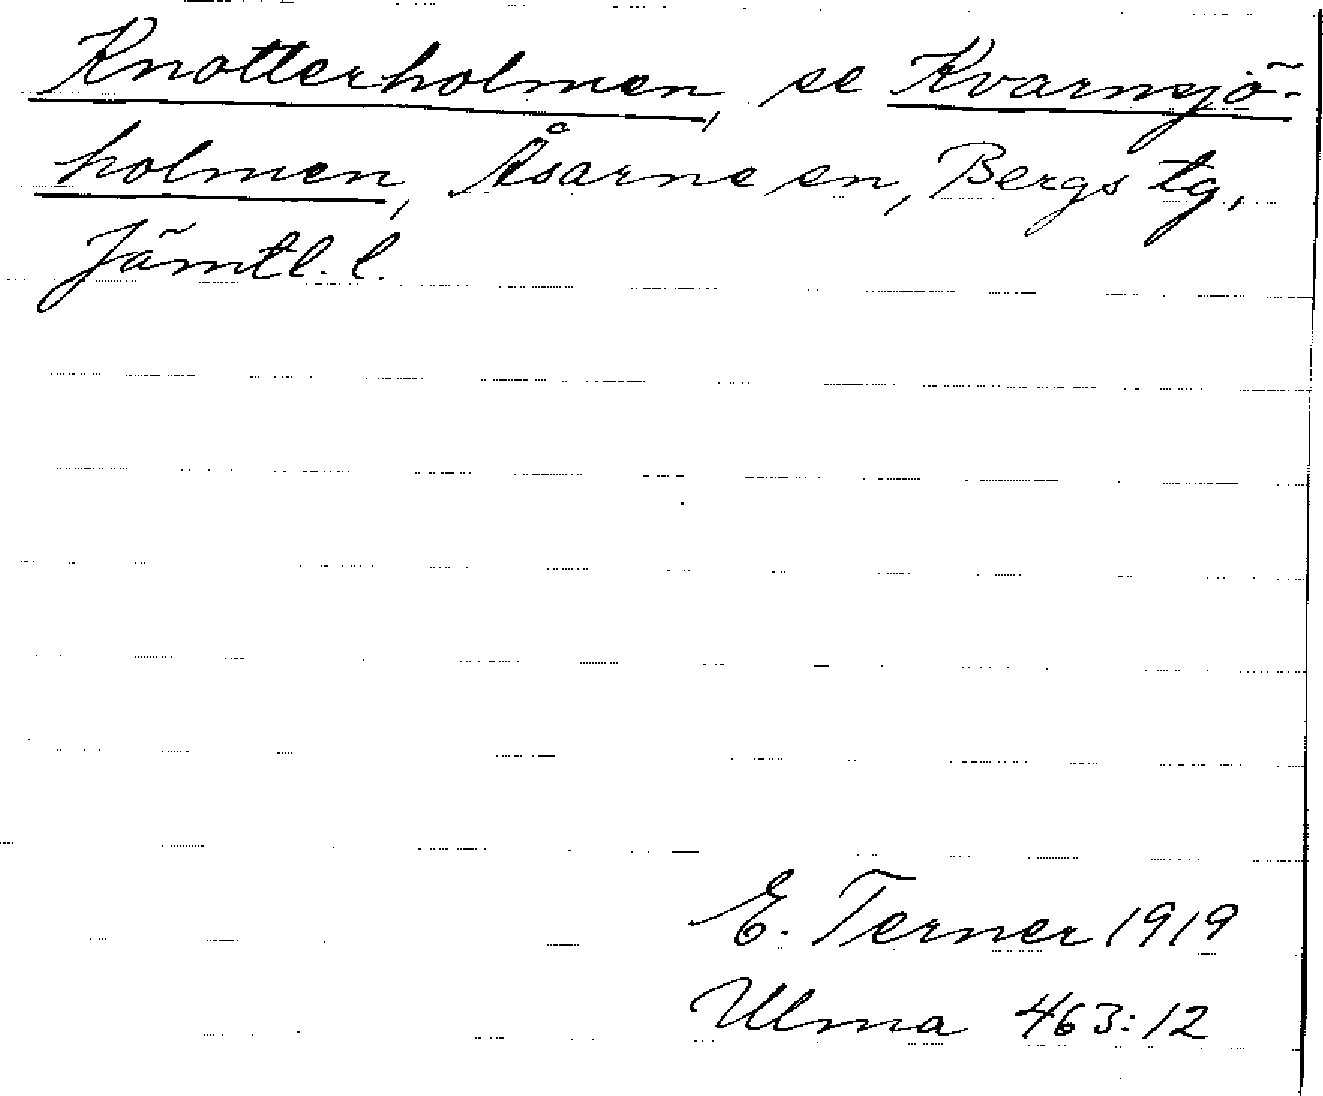 Knotterholmen, se Kvarnsjö-
holmen, Åsarne sn, Bergs tg,
Jämtl. l.
E. Terner 1919
Ulma 463:12